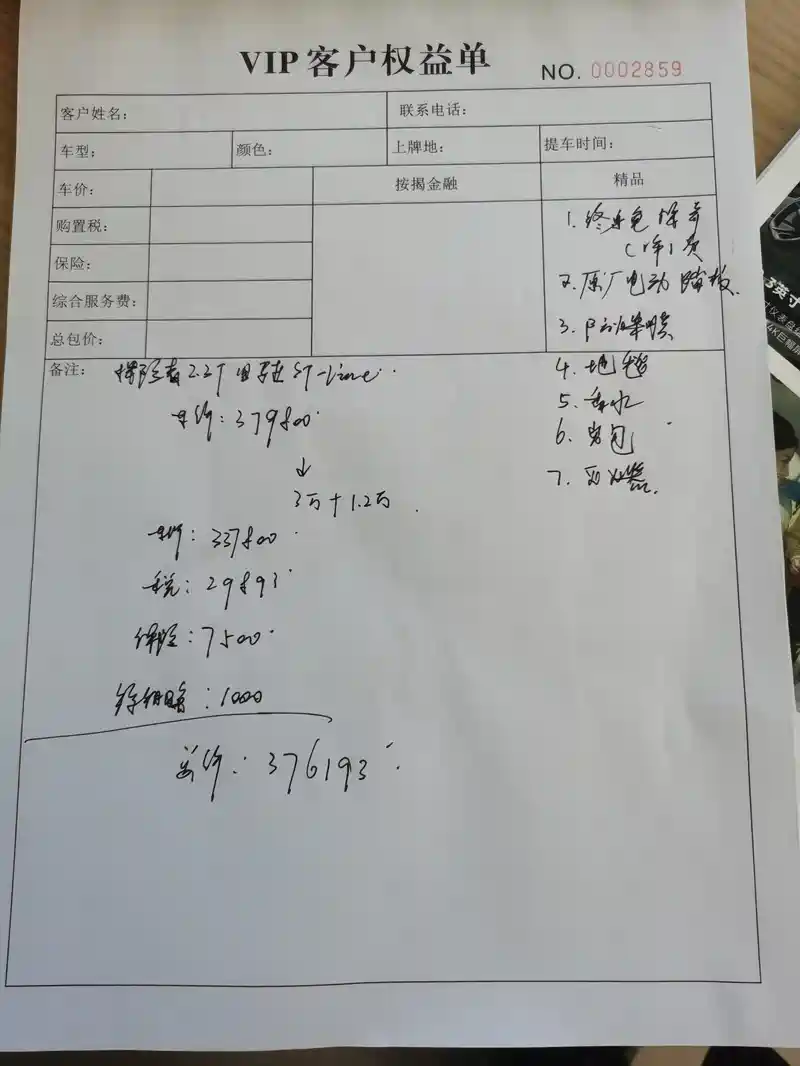 VIP客户权益单 NO. 0002859
客户姓名： 联系电话：
车型： 颜色： 上牌地： 提车时间：
车价： 按揭金融 精品
购置税：
保险：
综合服务费：
总包价：
1. 终身免
2. 原厂电动踏板.
3.
4. 地毯
5. 香水
6. 包
7. 灭火器.
备注： 探险者2.3T 四驱 ST-Line
车价：379800
↓
3万+1.2万
车价：337800
税：29893
保险：7500
：1000
总价：376193
3英寸